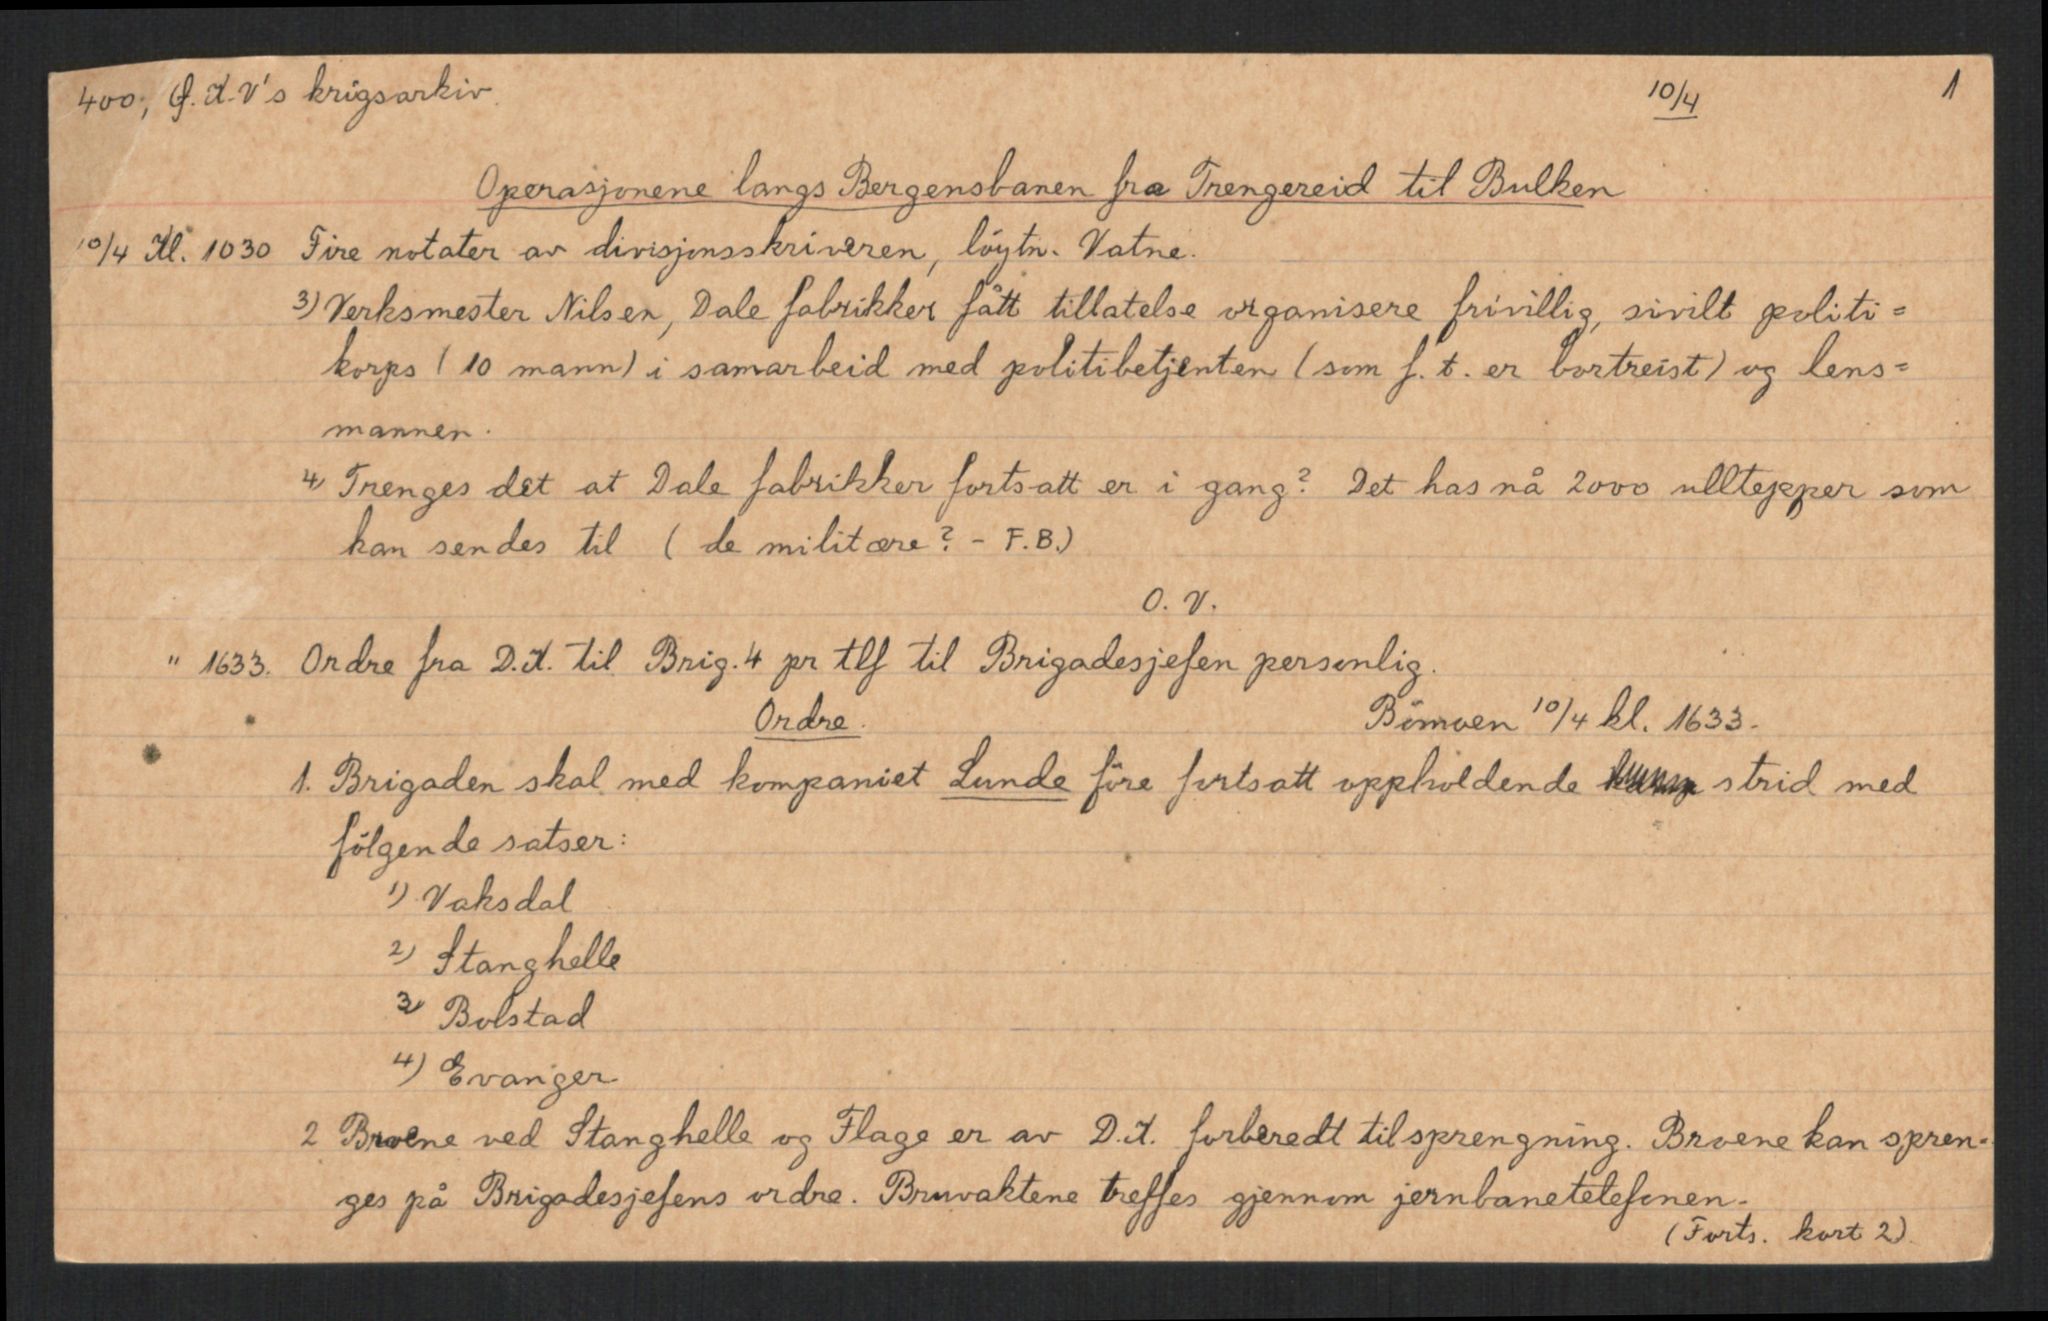 400; Ø.K.V's krigsarkiv. 10/4 1
Operasjonene langs Bergensbanen fra Trengereid til Bulken
10/4 Kl. 1030 Fire notater av divisjonsskriveren, löytn. Vatne.
3) Verksmester Nilsen, Dale fabrikker fått tillatelse organisere frivillig, sivilt politi=
korps (10 mann) i samarbeid med politibetjenten (som f.t. er bortreist) og lens=
mannen.
4) Trenges det at Dale fabrikker fortsatt er i gang? Det has nå 2000 ulltepper som
kan sendes til (de militære? - F.B.)
O.V.
" 1633. Ordre fra D.K. til Brig. 4 pr tlf til Brigadesjefen personlig.
Ordre. Bömoen 10/4 kl. 1633.
1. Brigaden skal med kompaniet Lunde före fortsatt oppholdende strid med
fölgende satser:
1) Vaksdal
2) Stanghelle
3) Bolstad
4) Evanger
2 Broene ved Stanghelle og Flage er av D.K. forberedt til sprengning. Broene kan spren=
ges på Brigadesjefens ordre. Bruvaktene treffes gjennom jernbanetelefonen.
(Forts. kort 2).